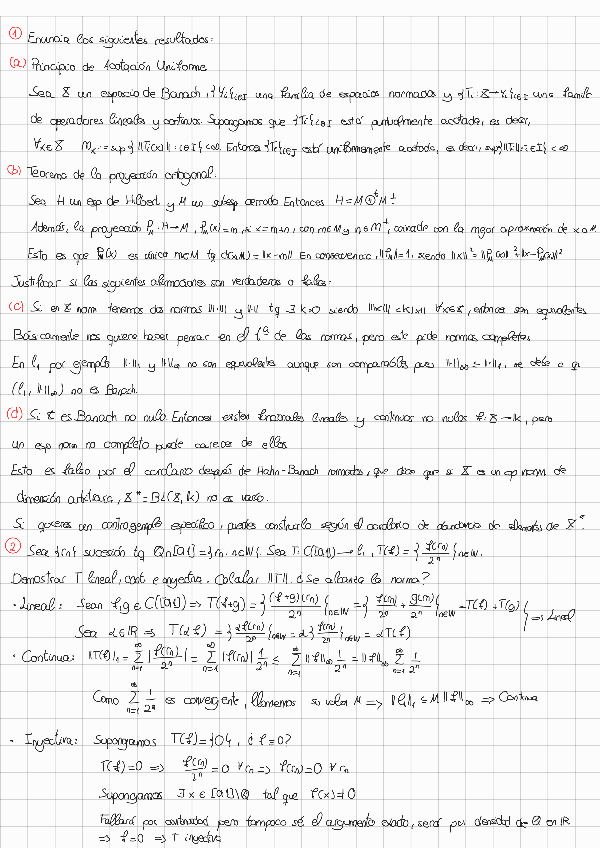 ① Enuncia los siguientes resultados:
(a) Principio de Acotación Uniforme
Sea X un espacio de Banach, {Yi}i∈I una familia de espacios normados y {Ti: X→Yi}i∈I una familia
de operadores lineales y continuos. Supongamos que {Ti}i∈I está puntualmente acotada, es decir,
∀x∈X Mx := sup{||Ti(x)|| : i∈I} < ∞. Entonces {Ti}i∈I está uniformemente acotada, es decir, sup{||Ti|| : i∈I} < ∞
(b) Teorema de la proyección ortogonal.
Sea H un esp de Hilbert y M un subesp cerrado Entonces H = M ⊕ M⊥
Además, la proyección PM: H→M, PM(x)=m, si x=m+n, con m∈M y n∈M⊥, coincide con la mejor aproximación de x a M.
Esto es que PM(x) es único m∈M tq d(x,M) = ||x-m|| En consecuencia, ||PM||=1, siendo ||x||² = ||PM(x)||² + ||x-PM(x)||²
Justificar si las siguientes afirmaciones son verdaderas o falsas:
(c) Si en X norm tenemos dos normas |||·||| y ||·|| tq ∃ k>0 siendo |||x||| ≤ k||x|| ∀x∈X, entonces son equivalentes
Básicamente nos quiere hacer pensar en el Tª de las normas, pero este pide normas completas
En l1 por ejemplo ||·||1 y ||·||∞ no son equivalentes aunque son comparables pues ||·||∞ ≤ ||·||1, se debe a q
(l1, ||·||∞) no es Banach.
(d) Si X es Banach no nulo Entonces existen funcionales lineales y continuos no nulos f: X→K, pero
un esp norm no completo puede carecer de ellos
Esto es falso por el corolario después de Hahn-Banach normados, que dice que si X es un esp norm de
dimensión arbitraria, X* = BL(X, K) no es vacío.
Si quieres un contraejemplo específico, puedes construirlo según el corolario de abundancia de elementos de X*.
② Sea {rn} sucesión tq Q∩[0,1] = {rn : n∈N}. Sea T: C([0,1]) → l1, T(f) = {f(rn)/2^n}n∈N.
Demostrar T lineal, cont e inyectiva. Calcular ||T||. ¿Se alcanza la norma?
· Lineal: Sean f,g ∈ C([0,1]) => T(f+g) = {(f+g)(rn)/2^n}n∈N = {f(rn)/2^n + g(rn)/2^n}n∈N = T(f)+T(g)
Sea α∈R => T(αf) = {αf(rn)/2^n}n∈N = α{f(rn)/2^n}n∈N = αT(f) } => Lineal
· Continua: ||T(f)||1 = Σ_{n=1}^∞ |f(rn)/2^n| = Σ_{n=1}^∞ |f(rn)| 1/2^n ≤ Σ_{n=1}^∞ ||f||∞ 1/2^n = ||f||∞ Σ_{n=1}^∞ 1/2^n
Como Σ_{n=1}^∞ 1/2^n es convergente, llamemos su valor M => ||T(f)||1 ≤ M ||f||∞ => Continua
· Inyectiva: Supongamos T(f) = {0}, ¿f=0?
T(f)=0 => f(rn)/2^n = 0 ∀rn => f(rn)=0 ∀rn
Supongamos ∃x∈[0,1]\Q tal que f(x)≠0
Fallará por continuidad pero tampoco sé el argumento exacto, será por densidad de Q en R
=> f=0 => T inyectiva